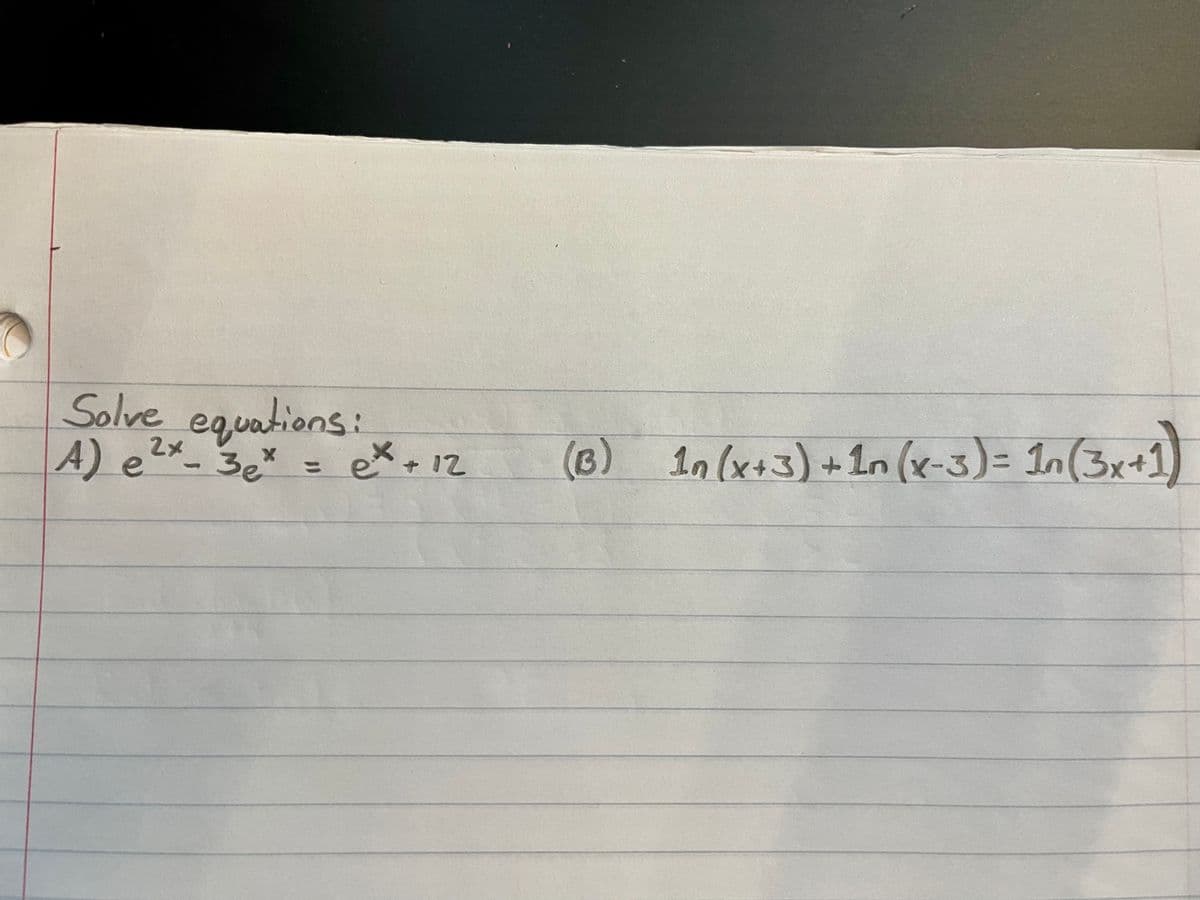 Solve equations:
A) e^2x - 3e^x = e^x + 12 (B) ln(x+3) + ln(x-3) = ln(3x+1)